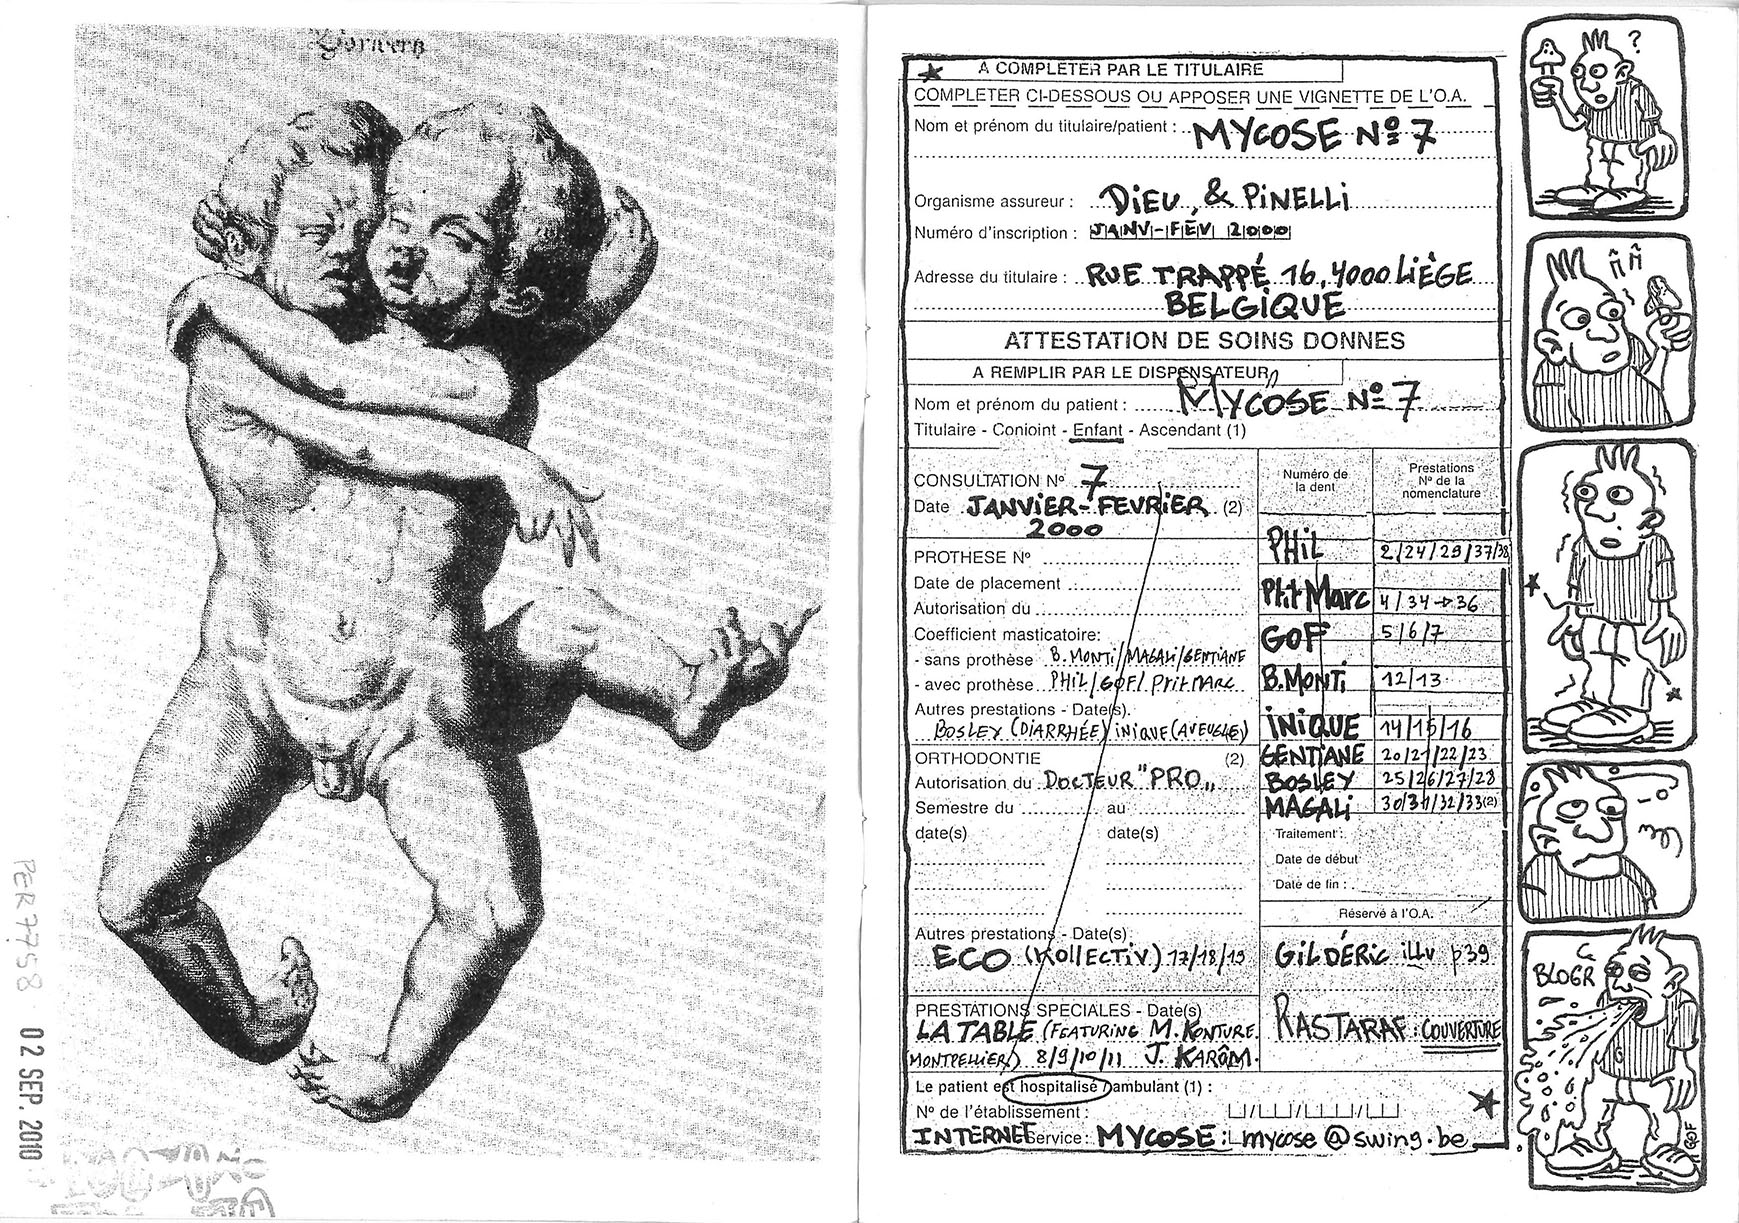 PER 7758
02 SEP. 2010
A COMPLETER PAR LE TITULAIRE
COMPLETER CI-DESSOUS OU APPOSER UNE VIGNETTE DE L'O.A.
Nom et prénom du titulaire/patient : MYCOSE Nº 7
Organisme assureur : DIEU, & PINELLI
Numéro d'inscription : JANV-FEV 2000
Adresse du titulaire : RUE TRAPPÉ 16, 4000 LIÈGE
BELGIQUE
ATTESTATION DE SOINS DONNES
A REMPLIR PAR LE DISPENSATEUR
Nom et prénom du patient : MYCOSE Nº 7
Titulaire - Conioint - Enfant - Ascendant (1)
CONSULTATION Nº 7
Date JANVIER-FEVRIER (2)
2000
PROTHESE Nº
Date de placement
Autorisation du
Coefficient masticatoire:
- sans prothèse B. MONTI/MAGALI/GENTIANE
- avec prothèse PHIL/GOF/PtitMARC
Autres prestations - Date(s).
BOSLEY (DIARRHÉE) INIQUE (AVEUGLE)
ORTHODONTIE (2)
Autorisation du DOCTEUR "PRO„
Semestre du au
date(s) date(s)
Autres prestations - Date(s)
ECO (KOLLECTIV) 17/18/19
PRESTATIONS SPECIALES - Date(s)
LA TABLE (FEATURING M. KONTURE
MONTPELLIER) 8/9/10/11 J. KARÔM.
Numéro de
la dent
Prestations
Nº de la
nomenclature
PHIL 2/24/29/37/38
Ptit Marc 4/34→36
GOF 5/6/7
B.MONTI 12/13
INIQUE 14/15/16
GENTIANE 20/21/22/23
BOSLEY 25/26/27/28
MAGALI 30/31/32/33(2)
Traitement :
Date de début
Date de fin :
Réservé à l'O.A.
GILDÉRIC illu p39
RASTARAF : COUVERTURE
Le patient est hospitalisé / ambulant (1) :
Nº de l'établissement :
INTERNET Service : MYCOSE : mycose@swing.be
?
BLOGR
GOF